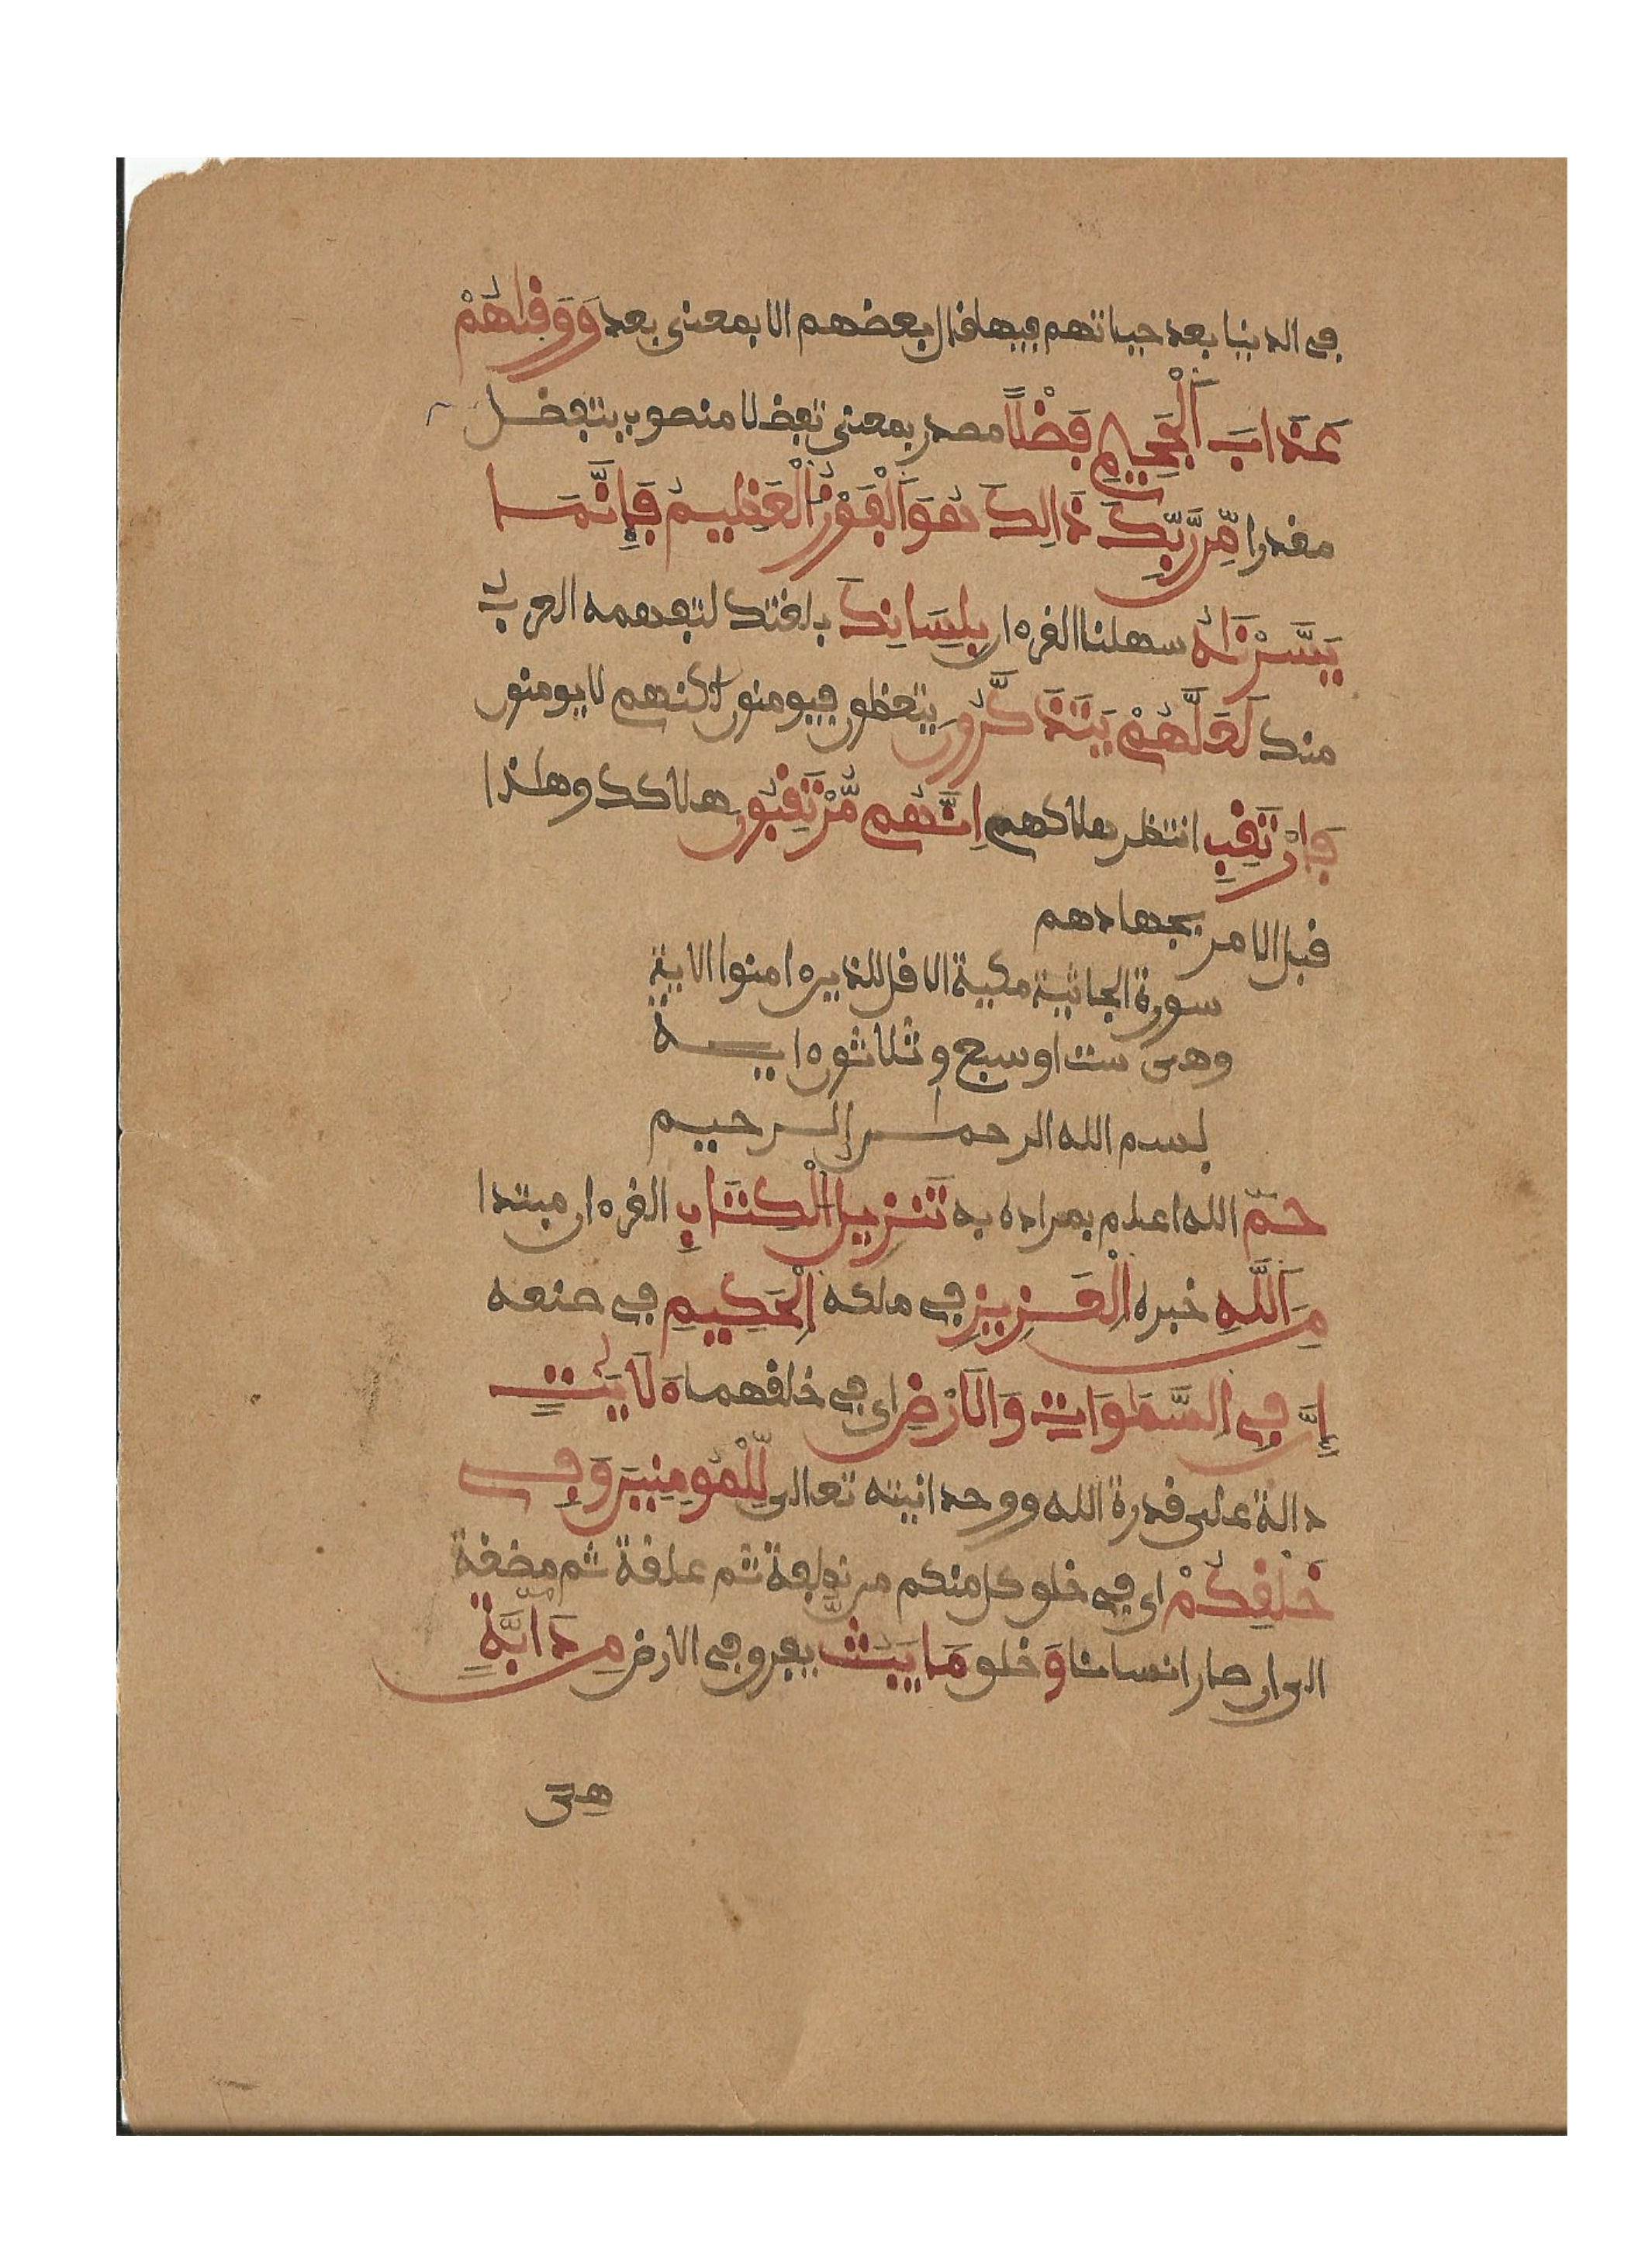 في الدنيا بعد حياتهم فيها قال بعضهم الا بمعنى بعد وَوَقٰىهُمْ
عَذَابَ اَ۬لْجَحِيمِ فَضْلًا مصدر بمعنى تفضلا منصوب بتفضل
مقدرا مِّن رَّبِّكَ ذَالِكَ هُوَ اَ۬لْفَوْزُ اُ۬لْعَظِيمُ فَإِنَّمَا
يَسَّرْنَٰهُ سهلنا القرءان بِلِسَانِكَ بلغتك لتفهمه العرب
منك لَعَلَّهُمْ يَتَذَكَّرُونَ يتعظون فيومنون لاكنهم لا يومنون
فَارْتَقِبِ انتظر هلاكهم اِنَّهُم مُّرْتَقِبُونَ هلاكك وهاذا
قبل الامر بجهادهم
سورة الجاثية مكية الا قل للذين ءامنوا الاية
وهي ست او سبع وثلاثون ءاية
بسم الله الرحمان الرحيم
حمٓ الله اعلم بمراده به تَنزِيلُ اُ۬لْكِتَابِ القرءان مبتدا
مِنَ اَ۬للَّهِ خبره اِ۬لْعَزِيزِ في ملكه اِ۬لْحَكِيمِ في صنعه
إِنَّ فِي اِ۬لسَّمَٰوَاتِ وَالَارْضِ اي في خلقهما ءَلَايَٰتٍ
دالة على قدرة الله ووحدانيته تعالى لِّلْمُومِنِينَ وَفِي
خَلْقِكُمْ اي في خلق كل منكم من نطفة ثم علقة ثم مضغة
الى ان صار انسانا وَ خلق مَا يَبُثُّ يفرق في الارض مِن دَآبَّةٍ
هي